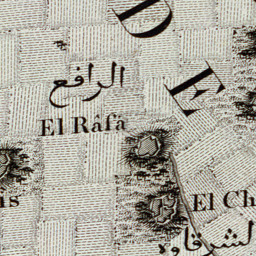 D
E
الرافع
El Râfà
El Ch
الشرقاوه